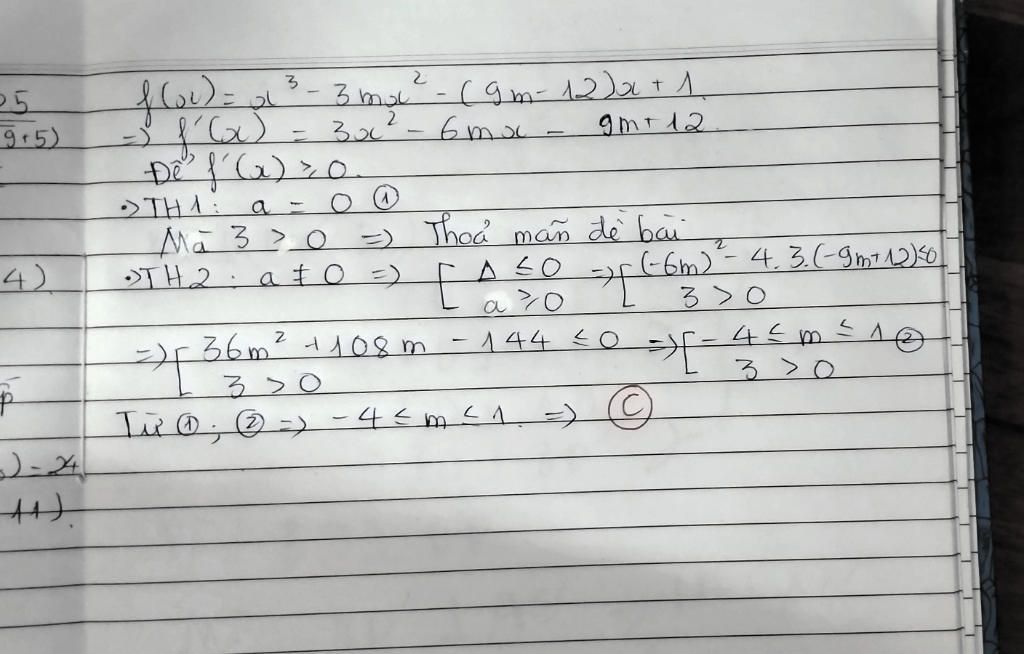 25
9+5)
4)
) = 24
11).
f(x) = x³ - 3mx² - (9m - 12)x + 1.
=> f'(x) = 3x² - 6mx - 9m + 12
Để f'(x) ≥ 0.
•> TH1: a = 0 ①
Mà 3 > 0 => Thoả mãn đề bài
•> TH2: a ≠ 0 => [ Δ ≤ 0 => [ (-6m)² - 4.3.(-9m+12) ≤ 0
a ≥ 0 3 > 0
=> [ 36m² + 108m - 144 ≤ 0 => [ - 4 ≤ m ≤ 1 ②
3 > 0 3 > 0
Từ ①; ② => - 4 ≤ m ≤ 1. => Ⓒ